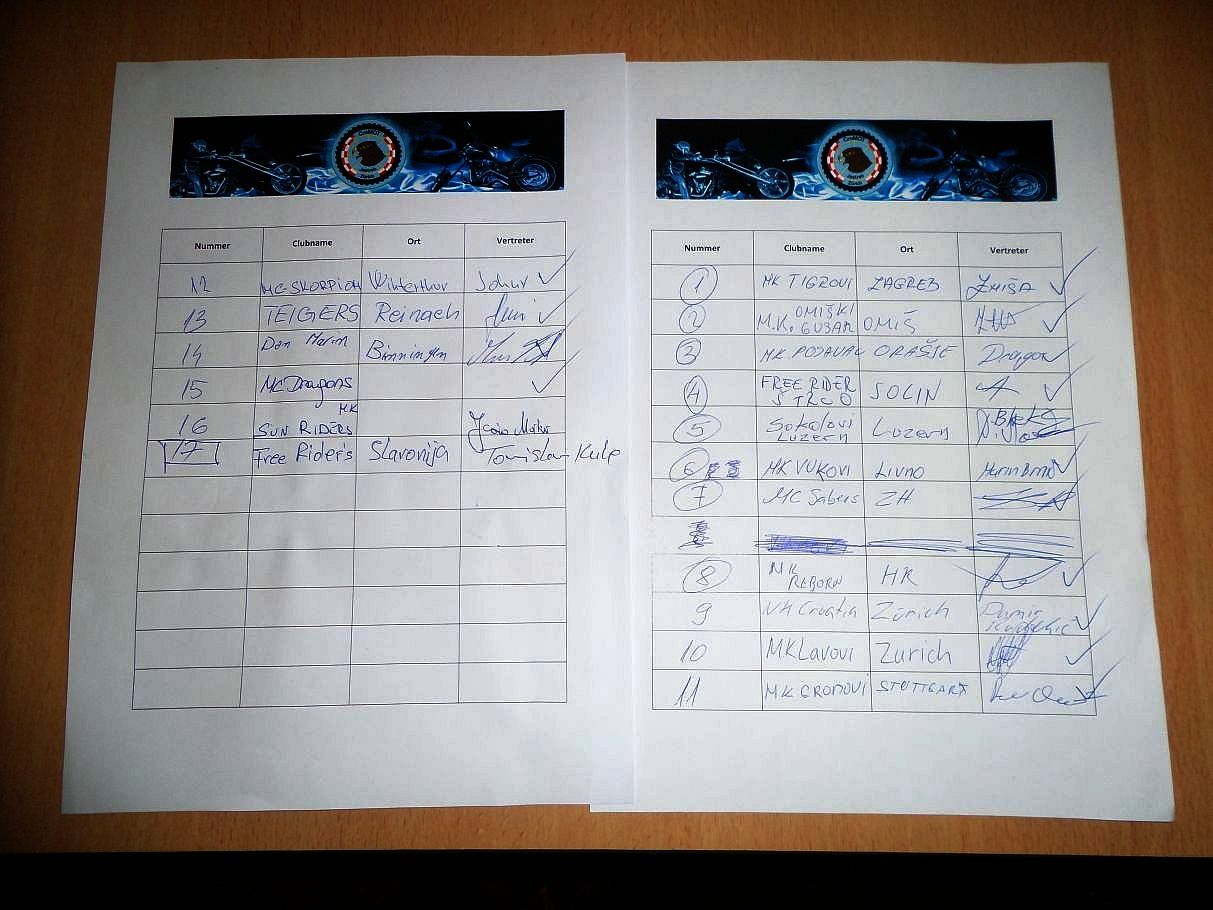 Nummer Clubname Ort Vertreter
12 MC SKORPION Winterthur
13 TEIGERS Reinach
14 Dan Marin Binningen
15 MC Dragons
16 MK SUN RIDERS
17 Free Rider's Slavonija Tomislav Kulp
Nummer Clubname Ort Vertreter
1 MK TIGROVI ZAGREB ZMIŠA
2 OMIŠKI
M.K. GUSAR OMIŠ
3 MK POSAVAC ORAŠJE Dragon
4 FREE RIDER SOLIN
5 Sokolovi
Luzern Luzern
6 MK VUKOVI LIVNO
7 MC Sabers ZH
8 MK
REBORN HR
9 Croatia Zürich Damir
10 MK Lavovi Zürich
11 MK GROMOVI STUTTGART